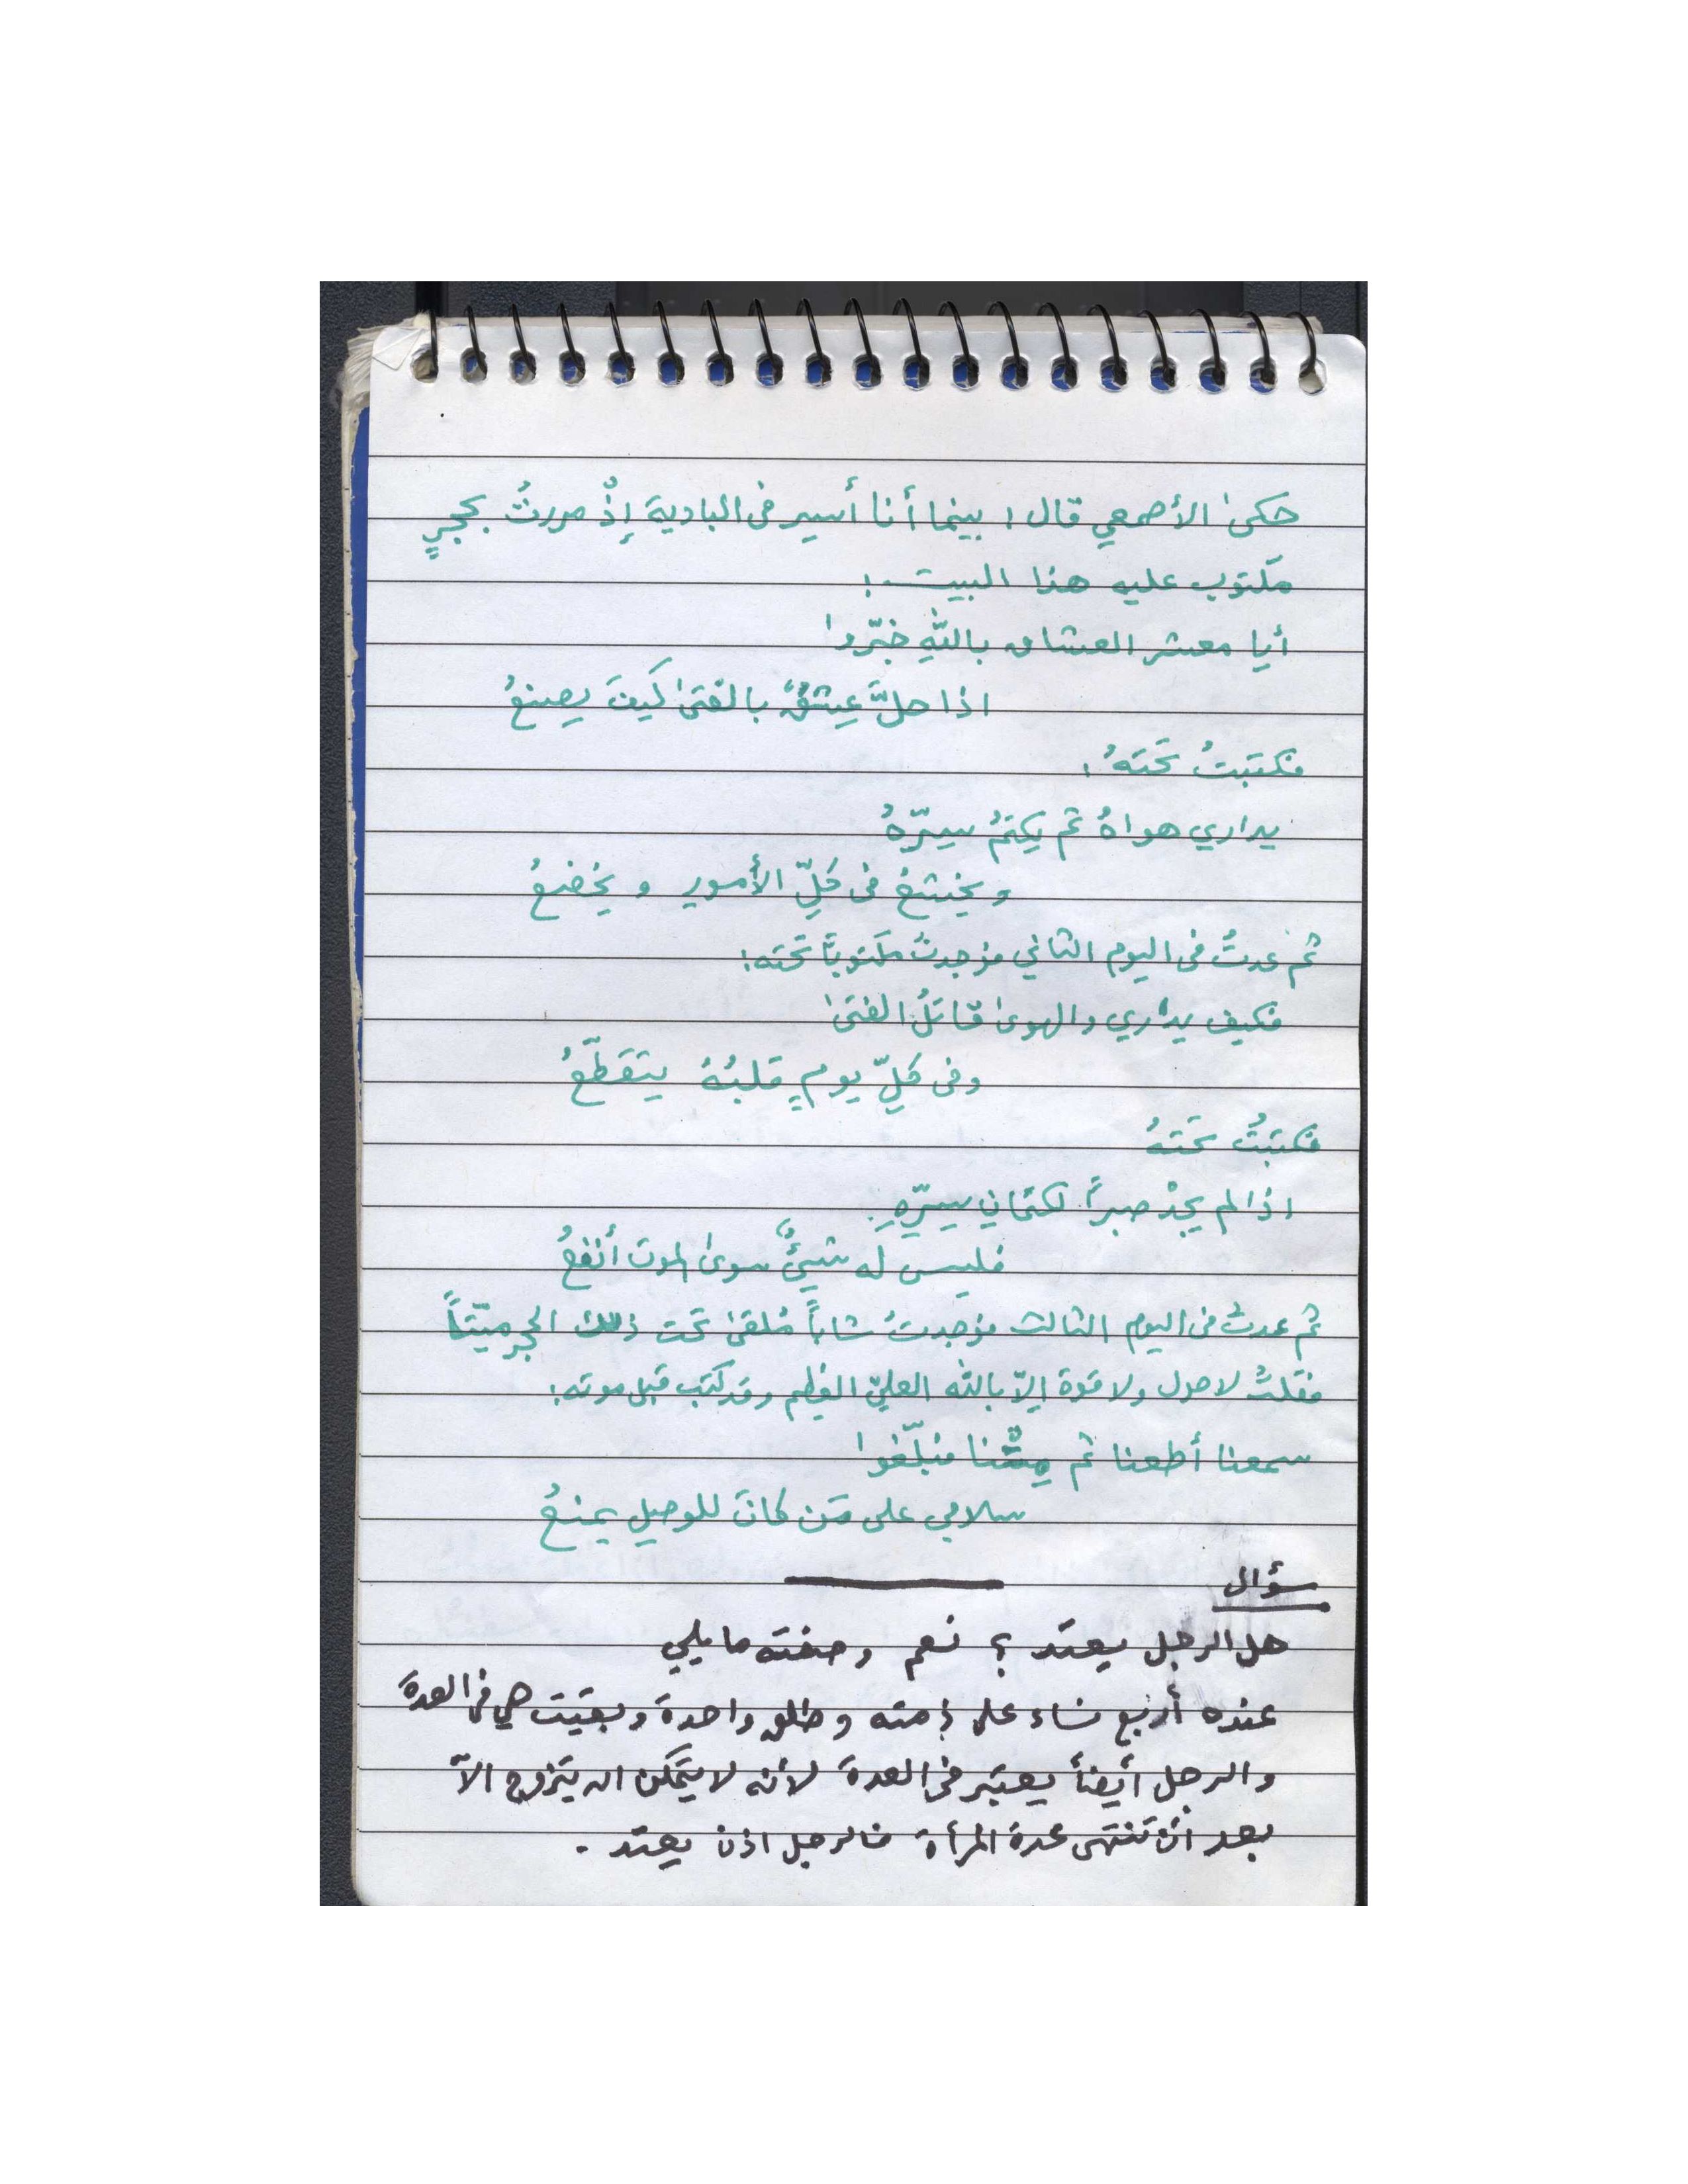 حكىٰ الأصمعي قال : بينما أنا أسير في البادية إذْ مررتُ بحجرٍ
مكتوب عليه هذا البيت :
أيا معشر العشاق باللّهِ خبّروا
اذا حلَّ عِشقٌ بالفتىٰ كيفَ يصنعُ
فكتبتُ تحتَهُ :
يداري هواهُ ثم يكتمُ سِرّهُ
و يخشعُ في كلِّ الأمورِ و يخضعُ
ثم عدتُ في اليوم الثاني فوجدتُ مكتوباً تحته :
فكيف يداري والهوىٰ قاتلُ الفتىٰ
وفي كلِّ يومٍ قلبُهُ يتقطّعُ
فكتبتُ تحتهُ
اذا لم يجدْ صبراً لكتمانِ سِرّهِ
فليس له شيءٌ سوىٰ الموت أنفعُ
ثم عدتُ في اليوم الثالث فوجدتُ شاباً مُلقىٰ تحت ذلك الحجر ميّتاً
فقلتُ لا حول ولا قوة إلاّ باللّه العليّ العظيم وقد كتب قبل موته :
سمعنا أطعنا ثم مِتْنا فبلّغوا
سلامي على مَن كانَ للوصلِ يمنعُ
سؤال
هل الرجل يعتد ؟ نعم وصفته ما يلي
عنده أربع نساء على ذمته و طلق واحدة و بقيت هي في العدة
والرجل أيضاً يعتبر في العدة لأنه لا يتمكن ان يتزوج الاّ
بعد أن تنتهي عدة المرأة فالرجل اذن يعتد .